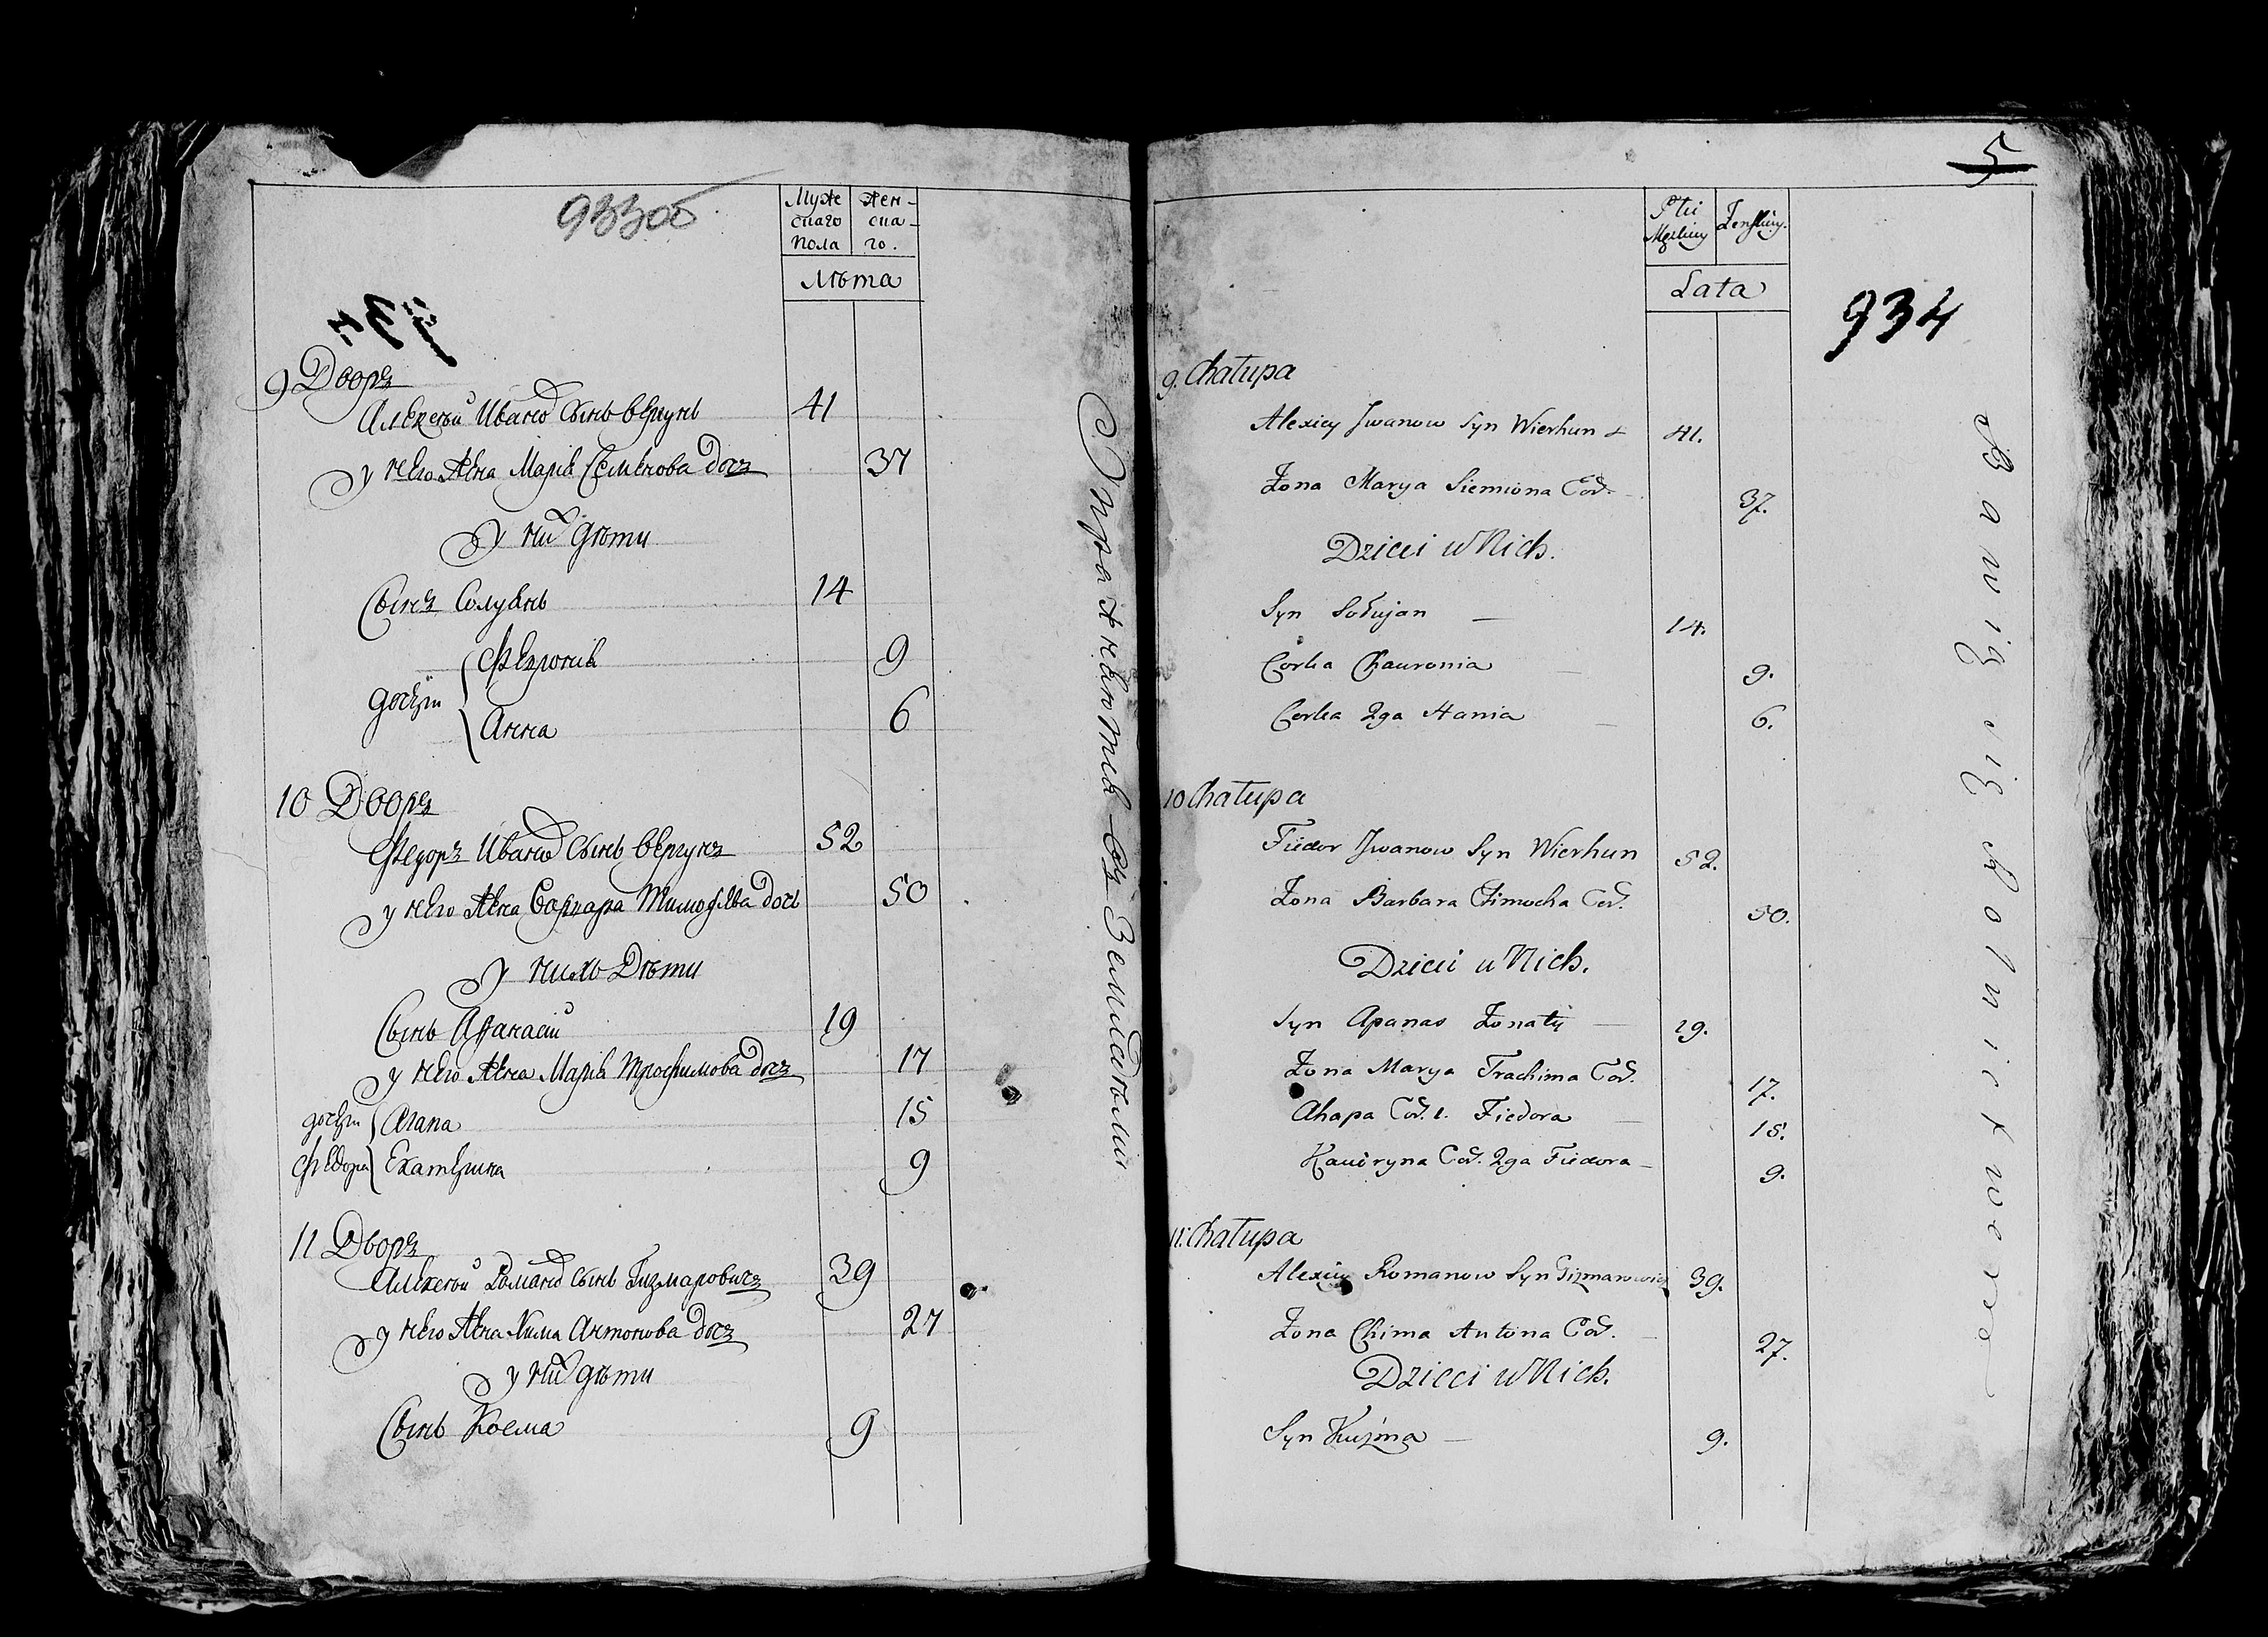 933об
Муже
скаго
пола
жен-
ска-
го.
Лѣта
934
9 Дворъ
Алексѣй Иванов Сынъ Вергунъ 41
у него жена Марія Семенова дочъ 37
У них дѣти
Сынъ Солуянъ 14
дочери
Февронія 9
Анна 6
10 Дворъ
Федоръ Иванов Сынъ Вергунъ 52
у него жена Варвара Тимофѣева дочь 50
У нихъ Дѣти
Сынъ Афанасій 19
у него жена Марія Трофимова дочъ 17
дочери Агапа 15
Федора Екатерина 9
11 Дворъ
Алексѣй Романов Сынъ Гизмаровичъ 39
у него жена Хима Антонова дочъ 27
у них дѣти
Сынъ Косма 9
5
Płci
Męskiey
Żeńskiey.
Lata
934
9. Chałupa
Alexiey Jwanow Syn Wierhun 41.
Żona Marya Siemiona Cod. 37.
Dzieci u Nich.
Syn Sołujan 14.
Corka Chauronia 9.
Corka 2ga Hania 6.
10 Chałupa
Fiedor Jwanow Syn Wierhun 52.
Żona Barbara Timocha Cod. 50.
Dzieci u Nich.
Syn Apanas Żonaty 19.
Żona Marya Trachima Cod. 17.
Ahapa Cod. 1. Fiedora 15.
Kaciryna Cod. 2ga Fiedora 9.
11. Chałupa
Alexiey Romanow Syn Gizmarowicz 39.
Żona Chima Antona Cod. 27.
Dzieci u Nich.
Syn Kuźma 9.